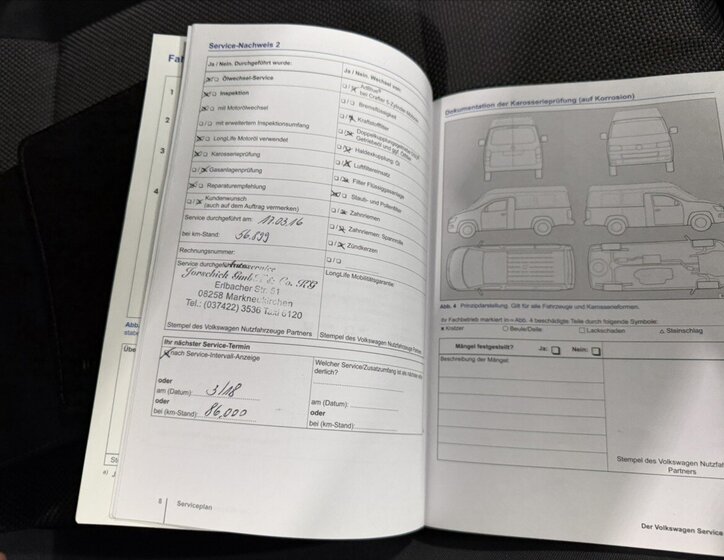 Fa
1
2
3
4
Abb.
Übe
Service-Nachweis 2
Ja / Nein. Durchgeführt wurde:
Ölwechsel-Service
Inspektion
mit Motorölwechsel
mit erweitertem Inspektionsumfang
LongLife Motoröl verwendet
Karosserieprüfung
Gasanlagenprüfung
Reparaturempfehlung
Kundenwunsch
(auch auf dem Auftrag vermerken)
Service durchgeführt am: 17.03.16
bei km-Stand: 56.899
Rechnungsnummer:
Service durchgeführt
Autocenter
Jorschich GmbH & Co. KG
Erlbacher Str. 51
08258 Markneukirchen
Tel.: (037422) 3536 Fax 6120
Stempel des Volkswagen Nutzfahrzeuge Partners
Ja / Nein. Wechsel von:
AdBlue®
bei Crafter 5-Zylinder-Motoren
Bremsflüssigkeit
Kraftstofffilter
Doppelkupplungsgetriebe
Haldexkupplung: Öl
Luftfiltereinsatz
Filter Flüssiggasanlage
Staub- und Pollenfilter
Zahnriemen
Zahnriemen: Spannrolle
Zündkerzen
LongLife Mobilitätsgarantie
Stempel des Volkswagen Nutzfahrzeuge Partners
Ihr nächster Service-Termin
nach Service-Intervall-Anzeige
oder
am (Datum): 3/18
oder
bei (km-Stand): 86,000
Welcher Service/Zusatzumfang ist als nächster
derlich?
am (Datum):
oder
bei (km-Stand):
8
Serviceplan
Dokumentation der Karosserieprüfung (auf Korrosion)
Abb. 4 Prinzipdarstellung. Gilt für alle Fahrzeuge und Karosserieformen.
Ihr Fachbetrieb markiert in ⇒ Abb. 4 beschädigte Teile durch folgende Symbole:
x Kratzer
○ Beule/Delle
□ Lackschaden
△ Steinschlag
Mängel festgestellt?
Ja:
Nein:
Beschreibung der Mängel:
Stempel des Volkswagen Nutzfah
Partners
Der Volkswagen Service